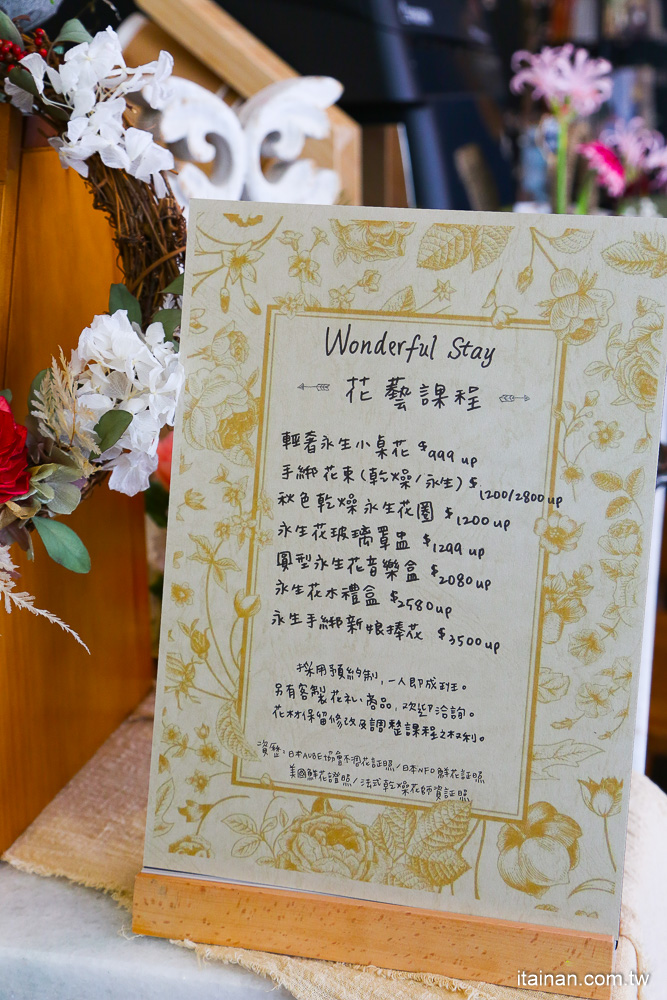 Wonderful Stay
花藝課程
輕奢永生小桌花 $999 up
手綁花束(乾燥/永生) $1200/2800 up
秋色乾燥永生花圈 $1200 up
永生花玻璃罩盅 $1299 up
圓型永生花音樂盒 $2080 up
永生花木禮盒 $2580 up
永生手綁新娘捧花 $3500 up
採用預約制,一人即成班。
另有客製花礼商品,欢迎洽詢。
花材保留修改及調整課程之权利。
資歷:日本AUBE協會不凋花証照/日本NFD鮮花証照
美國鮮花證照/法式乾燥花師資証照
itainan.com.tw